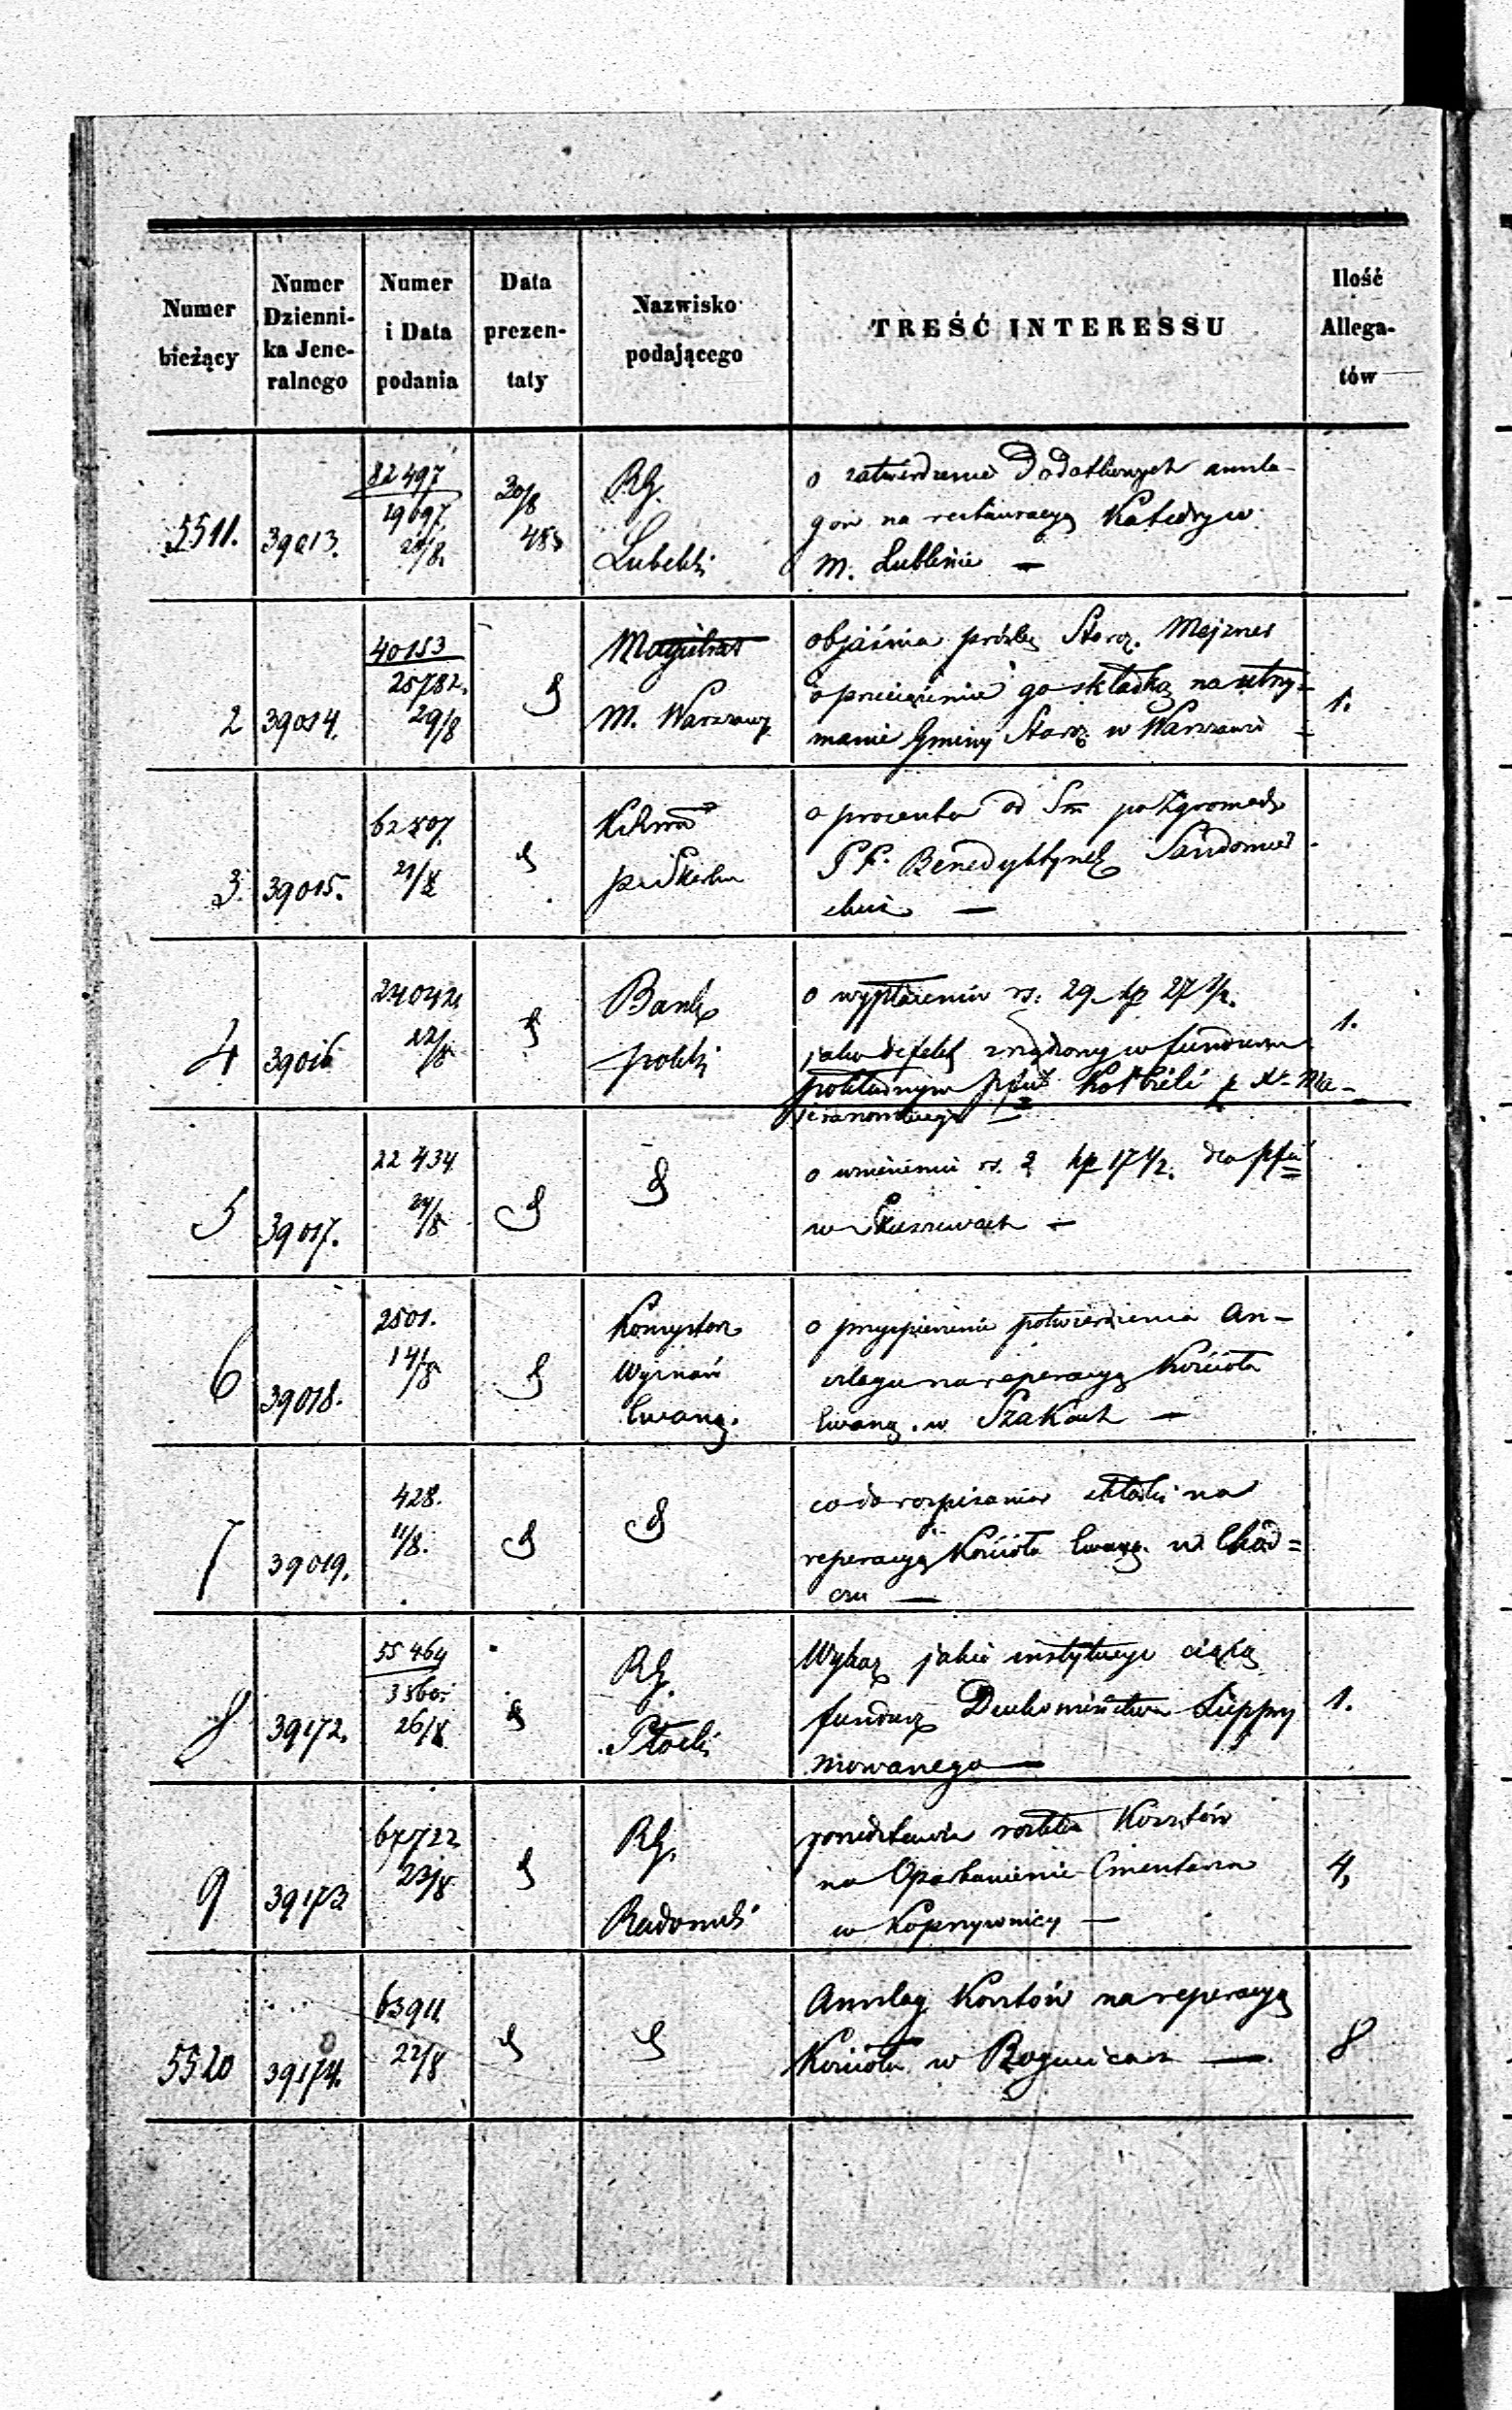 Numer bieżący
Numer Dzienni-ka Jene-ralnego
Numer i Data podania
Data prezen-taty
Nazwisko podającego
TREŚĆ INTERESSU
Ilość Allega-tów
5511.
39013.
82497
19697.
30/8
485
RG.
Lubelski
o zatwierdzenie Dodatkowych ansla-
gów na restauracyą Katedry w
m. Lublinie —
2
39014.
40153
25782.
29/8
Magistrat
m. Warszawy
objaśnia prośbę Staroz. Majznes
o przeciążenie go składką na utrzy-
manie Gminy Staroz. w Warszawie
1.
3.
39015.
21/8
o procenta od Sm po Zgromadz
PP. Benedyktynek Sandomier
4
39016
22/8
Bank
polski
o wypłaceniu rs. 29 kp 27 1/2.
jako defekt zrządzony w funduszu
1.
5
39017.
22434
o wniesieniu rs. 2 kp 17 1/2.
w
6
39018.
2501.
14/8
Konsystorz
Wyznań
Ewang.
o przyspieszenie potwierdzenia An-
szlagu na reperacyą Kościoła
Ewang. w Szakach —
7
39019.
428.
11/8.
co do rozpisania składki na
reperacyą Kościoła Ewang. w Chod=
czu —
8
39172.
55464
3560.
26/8
RG.
Płocki
Wykaz jakie instytucye ciążą
fundusz Duchowieństwa Suppry
mowanego —
1.
9
39173
23/8
RG.
Radomski
przedstawia rozkład Kosztów
na Oparkanienie Cmentarza
w Koprzywnicy —
4,
5520
39174.
63911
22/8
Anszlag Kosztów na reperacyą
Kościoła w Bogucicach —
8